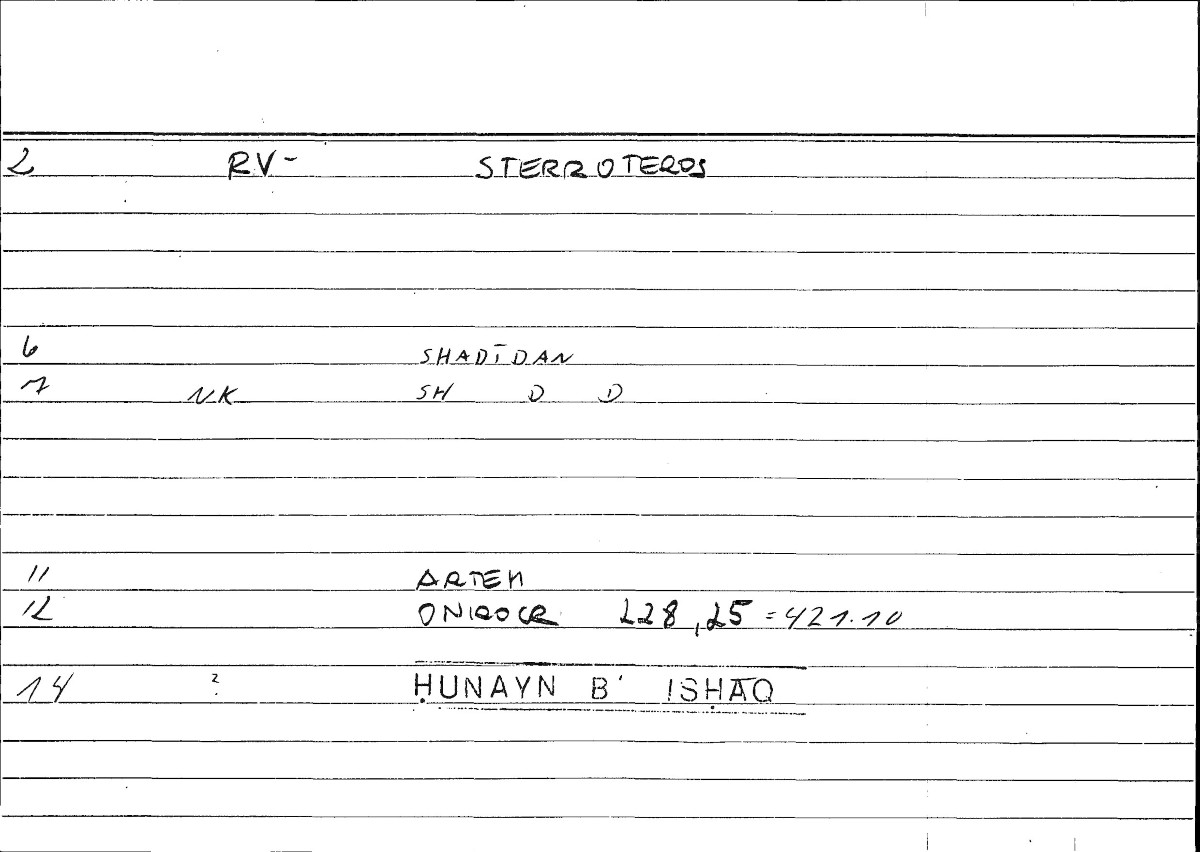 2 RV- STERROTEROS
6 SHADĪDAN
7 NK SH D D
11 ARTEM
12 ONIROCR 228,25 = 421.10
14 ? ḤUNAYN B' ISḤĀQ